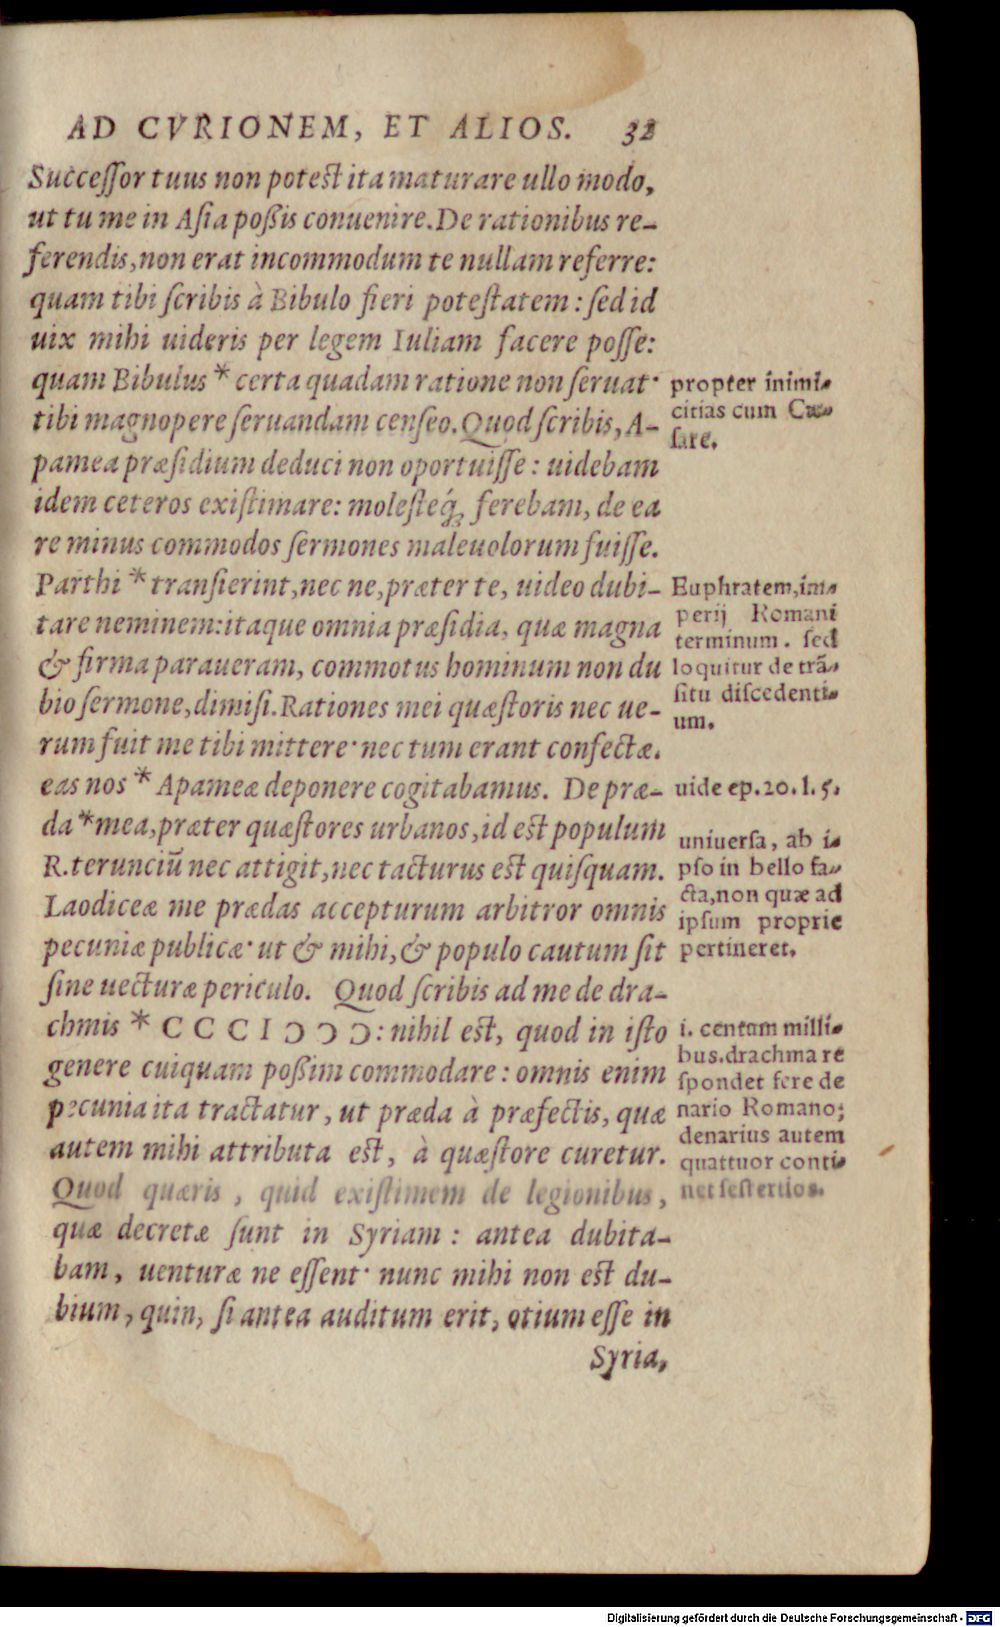 AD CVRIONEM, ET ALIOS. 32
Successor tuus non potest ita maturare ullo modo,
ut tu me in Asia poßis conuenire. De rationibus re-
ferendis, non erat incommodum te nullam referre:
quam tibi scribis à Bibulo fieri potestatem: sed id
uix mihi uideris per legem Iuliam facere posse:
quam Bibulus * certa quadam ratione non seruat·
tibi magnopere seruandam censeo. Quod scribis, A-
pamea præsidium deduci non oportuisse: uidebam
idem ceteros existimare: molesteq́; ferebam, de ea
re minus commodos sermones maleuolorum fuisse.
Parthi * transierint, nec ne, præter te, uideo dubi-
tare neminem: itaque omnia præsidia, quæ magna
& firma paraueram, commotus hominum non du
bio sermone, dimisi. Rationes mei quæstoris nec ue-
rum fuit me tibi mittere· nec tum erant confectæ.
eas nos * Apameæ deponere cogitabamus. De præ-
da * mea, præter quæstores urbanos, id est populum
R. terunciū nec attigit, nec tacturus est quisquam.
Laodiceæ me prædas accepturum arbitror omnis
pecuniæ publicæ· ut & mihi, & populo cautum sit
sine uecturæ periculo. Quod scribis ad me de dra-
chmis * CCCIↃↃↃ: nihil est, quod in isto
genere cuiquam poßim commodare: omnis enim
pecunia ita tractatur, ut præda à præfectis, quæ
autem mihi attributa est, à quæstore curetur.
Quod quæris, quid existimem de legionibus,
quæ decretæ sunt in Syriam: antea dubita-
bam, uenturæ ne essent· nunc mihi non est du-
bium, quin, si antea auditum erit, otium esse in
Syria,
propter inimi-
citias cum Cæ-
sare.
Euphratem, im-
perij Romani
terminum. sed
loquitur de trā-
situ discedenti-
um.
uide ep. 20. l. 5.
uniuersa, ab i-
pso in bello fa-
cta, non quæ ad
ipsum proprie
pertineret.
i. centum milli-
bus. drachma re
spondet fere de
nario Romano;
denarius autem
quattuor conti-
net sestertios.
Digitalisierung gefördert durch die Deutsche Forschungsgemeinschaft - DFG